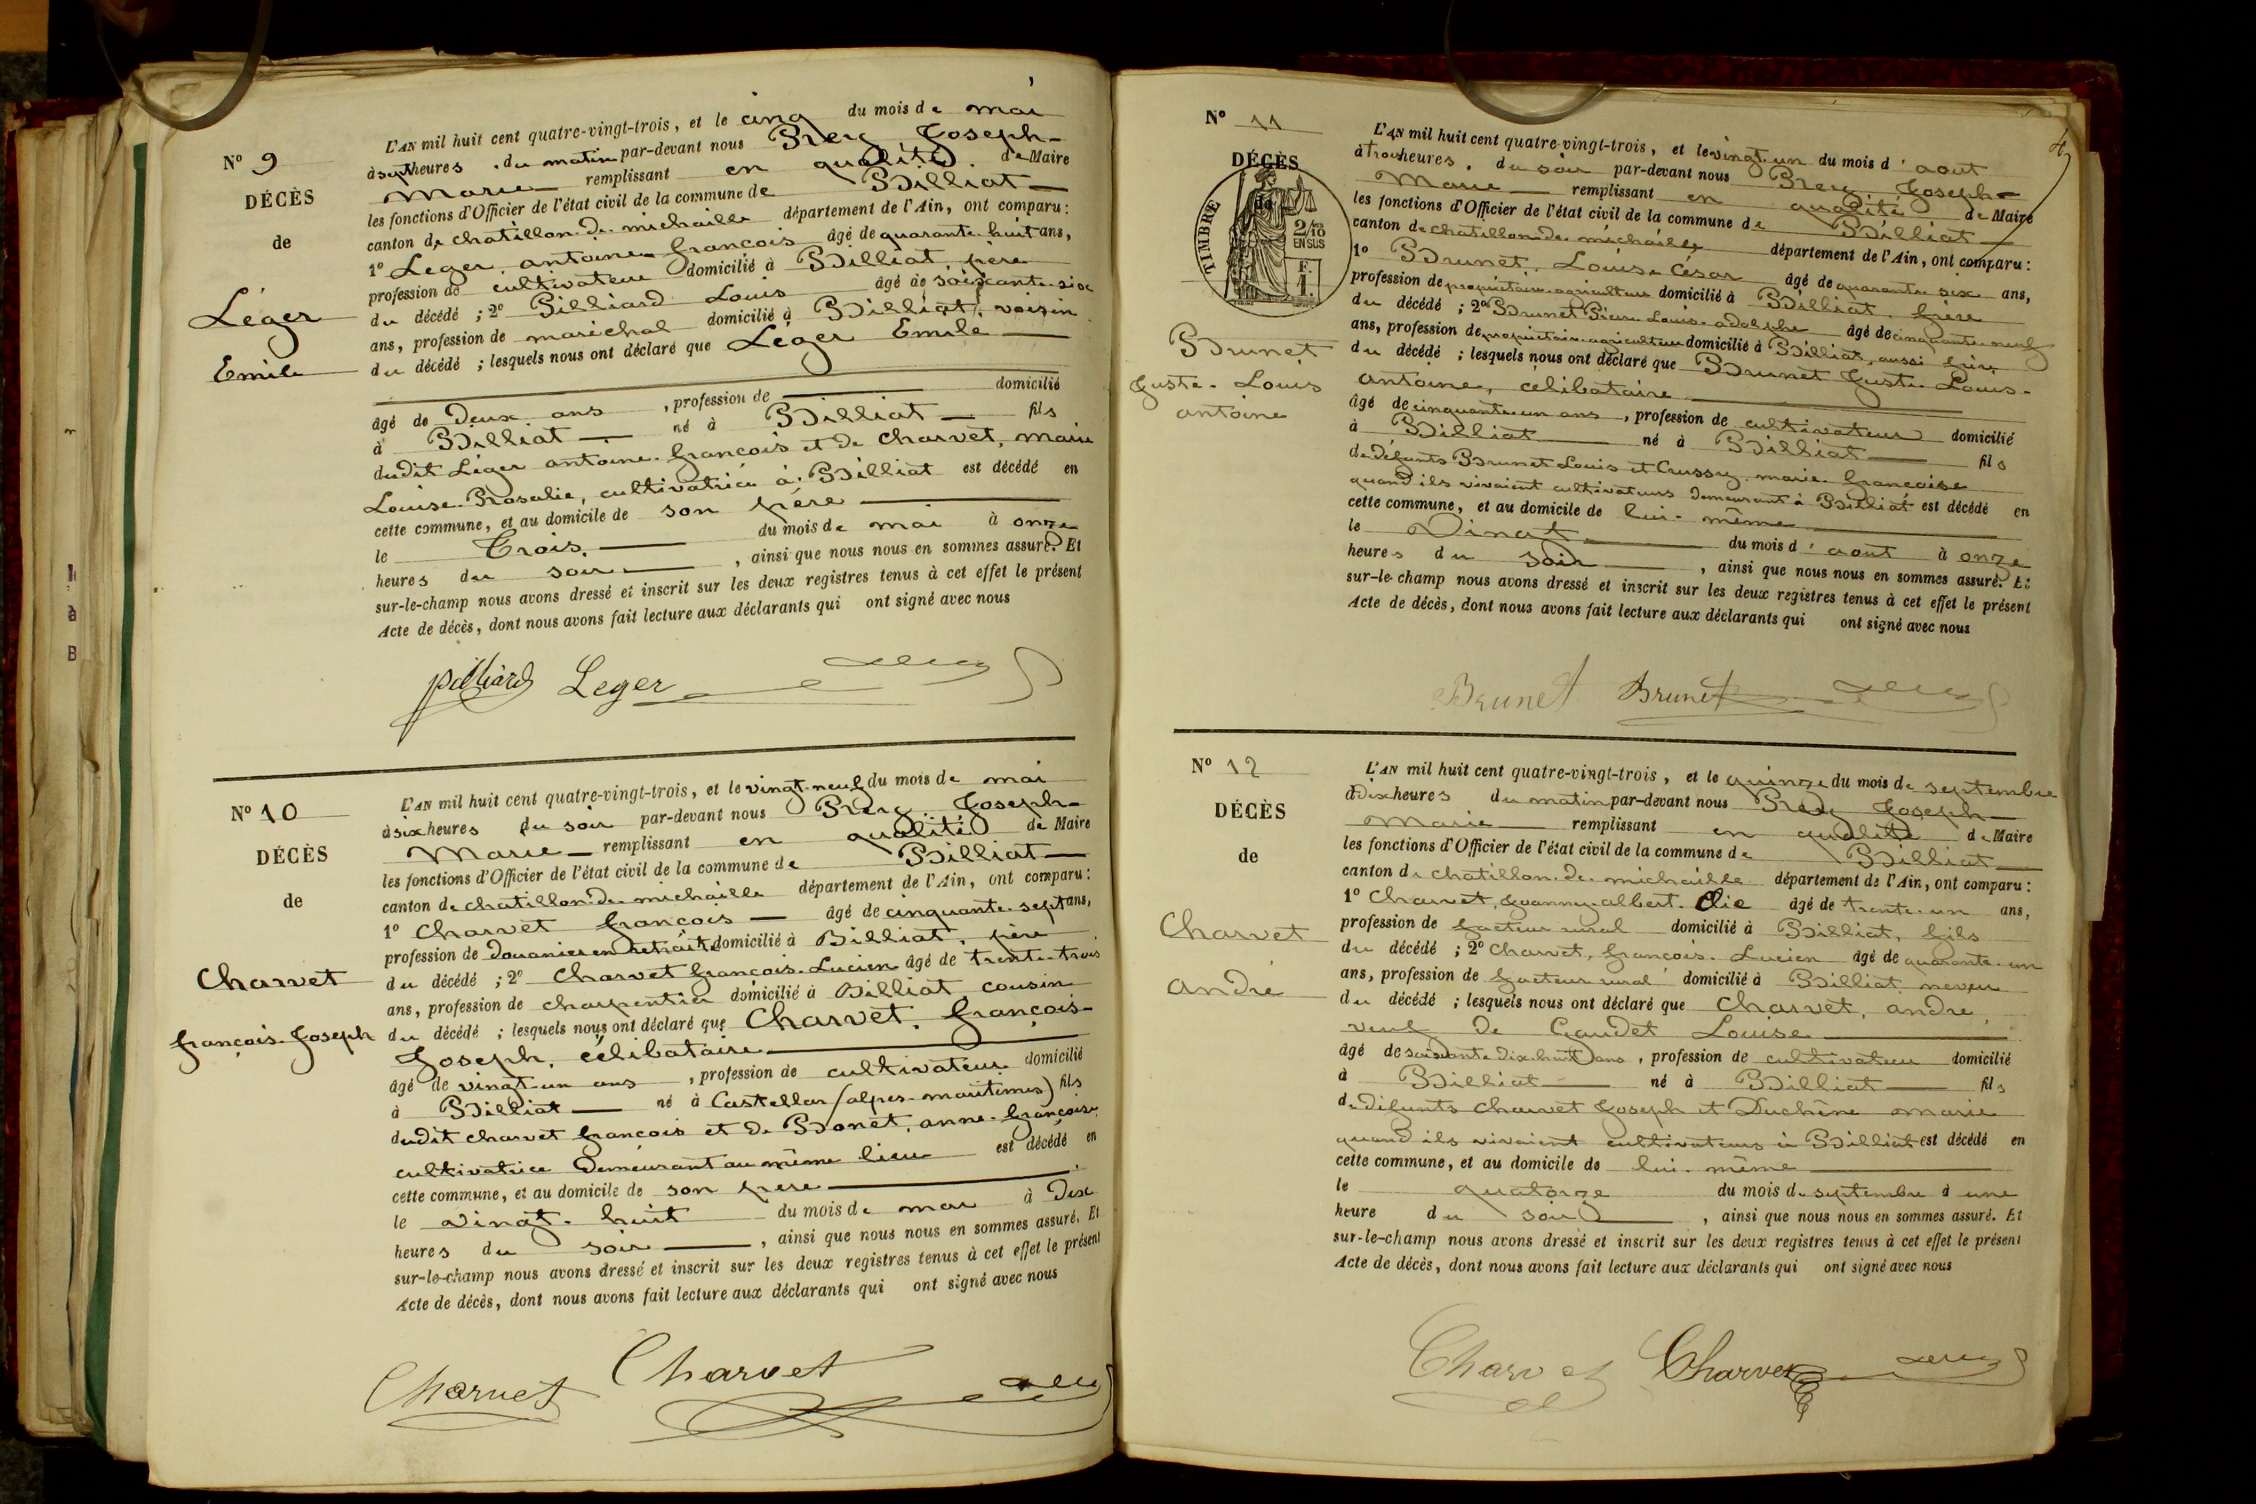 N° 9
DÉCÈS
de
Léger
Emile
L'AN mil huit cent quatre-vingt-trois, et le cinq du mois de mai
à sept heures du matin par-devant nous Joseph-
Marie remplissant en qualité de Maire
les fonctions d'Officier de l'état civil de la commune de Billiat
canton de chatillon-de-michaille département de l'Ain, ont comparu:
1° Leger, antoine-françois âgé de quarante-huit ans,
profession de cultivateur domicilié à Billiat, père
du décédé; 2° Billiard Louis âgé de soixante-six
ans, profession de maréchal domicilié à Billiat, voisin
du décédé; lesquels nous ont déclaré que Léger Emile
âgé de Deux ans, profession de domicilié
à Billiat né à Billiat fils
dudit Léger antoine-françois et de Charvet, marie
Louise-Rosalie, cultivatrice à Billiat est décédé en
cette commune, et au domicile de son père
le Trois, du mois de mai à onze
heures du soir, ainsi que nous nous en sommes assuré. Et
sur-le-champ nous avons dressé et inscrit sur les deux registres tenus à cet effet le présent
Acte de décès, dont nous avons fait lecture aux déclarants qui ont signé avec nous
Billiard Leger
N° 10
DÉCÈS
de
Charvet
françois-Joseph
L'AN mil huit cent quatre-vingt-trois, et le vingt-neuf du mois de mai
à six heures du soir par-devant nous Joseph-
Marie remplissant en qualité de Maire
les fonctions d'Officier de l'état civil de la commune de Billiat
canton de chatillon-de-michaille département de l'Ain, ont comparu:
1° Charvet françois âgé de cinquante-sept ans,
profession de douanier en retraite domicilié à Billiat, père
du décédé; 2° Charvet françois-Lucien âgé de trente-trois
ans, profession de charpentier domicilié à Billiat cousin
du décédé; lesquels nous ont déclaré que Charvet, françois-
Joseph, célibataire
âgé de vingt-un ans, profession de cultivateur domicilié
à Billiat né à Castellar (alpes-maritimes) fils
dudit charvet françois et de Bonet, anne-françoise,
cultivatrice Demeurant au même lieu est décédé en
cette commune, et au domicile de son père
le vingt-huit du mois de mai à Dix
heures du soir, ainsi que nous nous en sommes assuré. Et
sur-le-champ nous avons dressé et inscrit sur les deux registres tenus à cet effet le présent
Acte de décès, dont nous avons fait lecture aux déclarants qui ont signé avec nous
Charvet Charvet
4
N° 11
DÉCÈS
de
TIMBRE
2/10
EN SUS
F.
1.
Brunet
Juste-Louis
antoine
L'AN mil huit cent quatre-vingt-trois, et le vingt-un du mois d'aout
à trois heures du soir par-devant nous Joseph-
Marie remplissant en qualité de Maire
les fonctions d'Officier de l'état civil de la commune de Billiat
canton de chatillon-de-michaille département de l'Ain, ont comparu:
1° Brunet, Louis-César âgé de quarante-six ans,
profession de propriétaire-agriculteur domicilié à Billiat, frère
du décédé; 2° Brunet Pierre-Louis-adolphe âgé de cinquante-neuf
ans, profession de propriétaire-agriculteur domicilié à Billiat, aussi frère
du décédé; lesquels nous ont déclaré que Brunet Juste-Louis-
antoine, célibataire
âgé de cinquante-un ans, profession de cultivateur domicilié
à Billiat né à Billiat fils
de défunts Brunet Louis et Crussy marie-françoise
quand ils vivaient cultivateurs demeurant à Billiat est décédé en
cette commune, et au domicile de lui-même
le Vingt du mois d'aout à onze
heures du soir, ainsi que nous nous en sommes assuré. Et
sur-le-champ nous avons dressé et inscrit sur les deux registres tenus à cet effet le présent
Acte de décès, dont nous avons fait lecture aux déclarants qui ont signé avec nous
Brunet Brunet
N° 12
DÉCÈS
de
Charvet
andré
L'AN mil huit cent quatre-vingt-trois, et le quinze du mois de septembre
à Dix heures du matin par-devant nous Joseph-
Marie remplissant en qualité de Maire
les fonctions d'Officier de l'état civil de la commune de Billiat
canton de chatillon-de-michaille département de l'Ain, ont comparu:
1° Charvet, Joanny-albert-Elie âgé de trente-un ans,
profession de facteur rural domicilié à Billiat, fils
du décédé; 2° Charvet, françois-Lucien âgé de quarante-un
ans, profession de facteur rural domicilié à Billiat neveu
du décédé; lesquels nous ont déclaré que Charvet, andré,
veuf de Gaudet Louise
âgé de soixante-dix-huit ans, profession de cultivateur domicilié
à Billiat né à Billiat fils
de défunts charvet Joseph et Duchêne marie
quand ils vivaient cultivateurs à Billiat est décédé en
cette commune, et au domicile de lui-même
le quatorze du mois de septembre à une
heure du soir, ainsi que nous nous en sommes assuré. Et
sur-le-champ nous avons dressé et inscrit sur les deux registres tenus à cet effet le présent
Acte de décès, dont nous avons fait lecture aux déclarants qui ont signé avec nous
Charvet Charvet